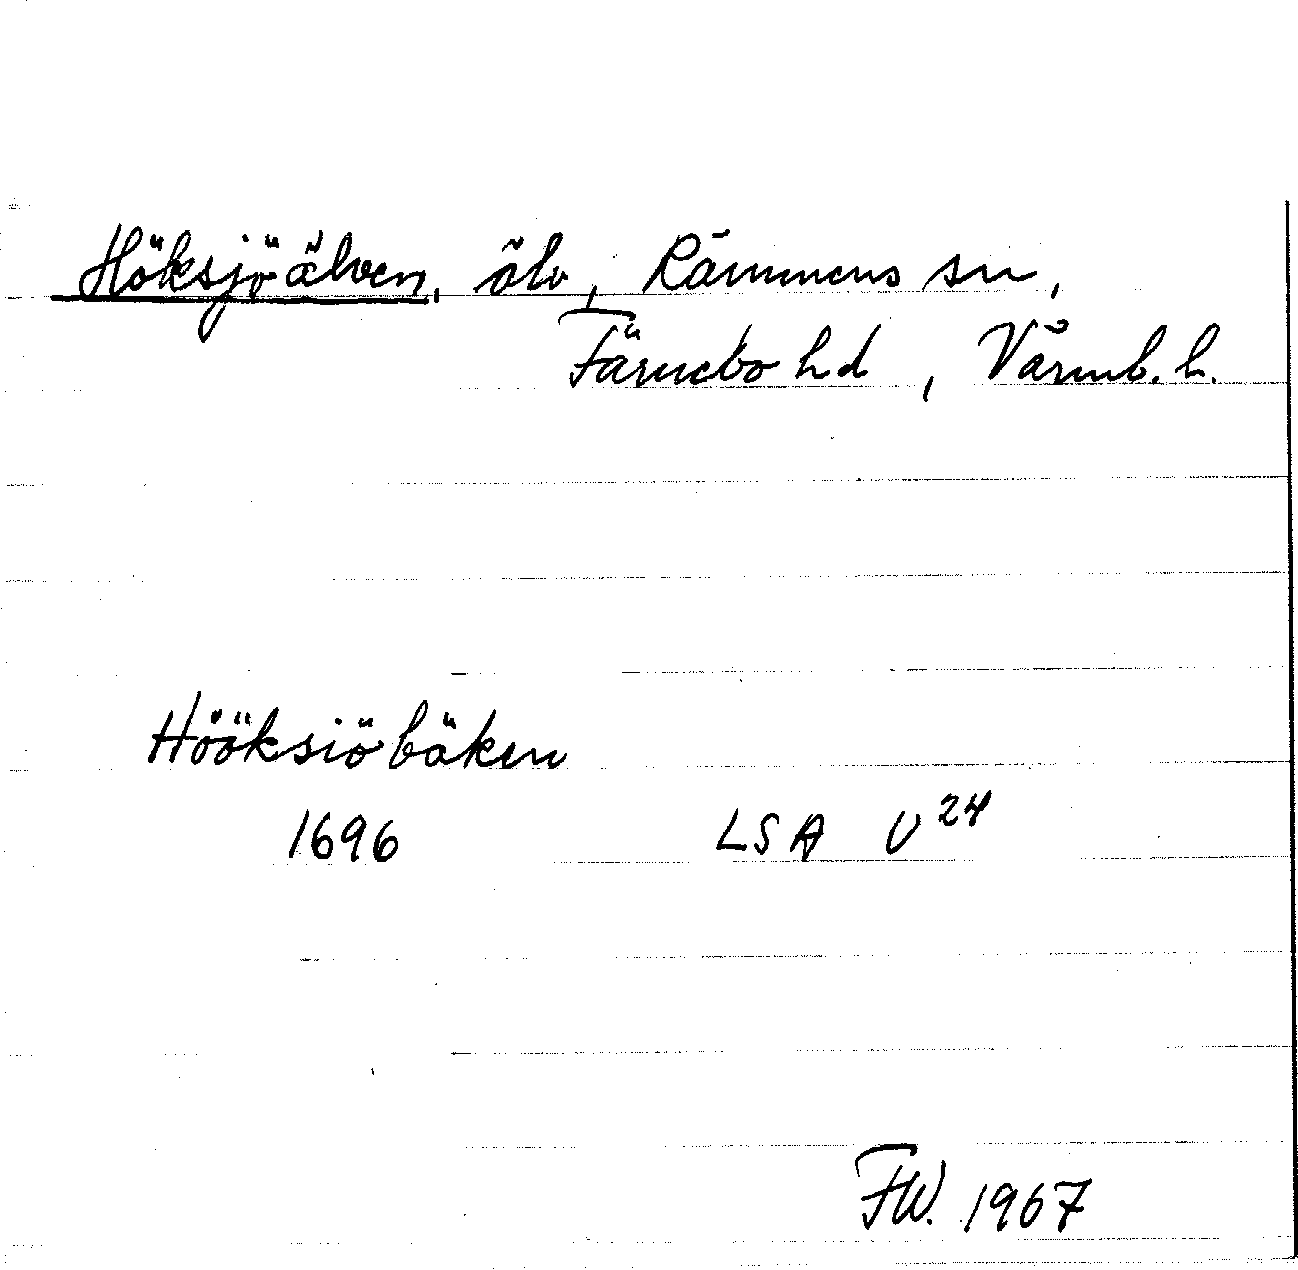 Höksjöälven, älv, Rämmens sn,
Färnebo hd, Värml. l.
Hööksiöbäken
1696 LSA U 24
FW. 1967